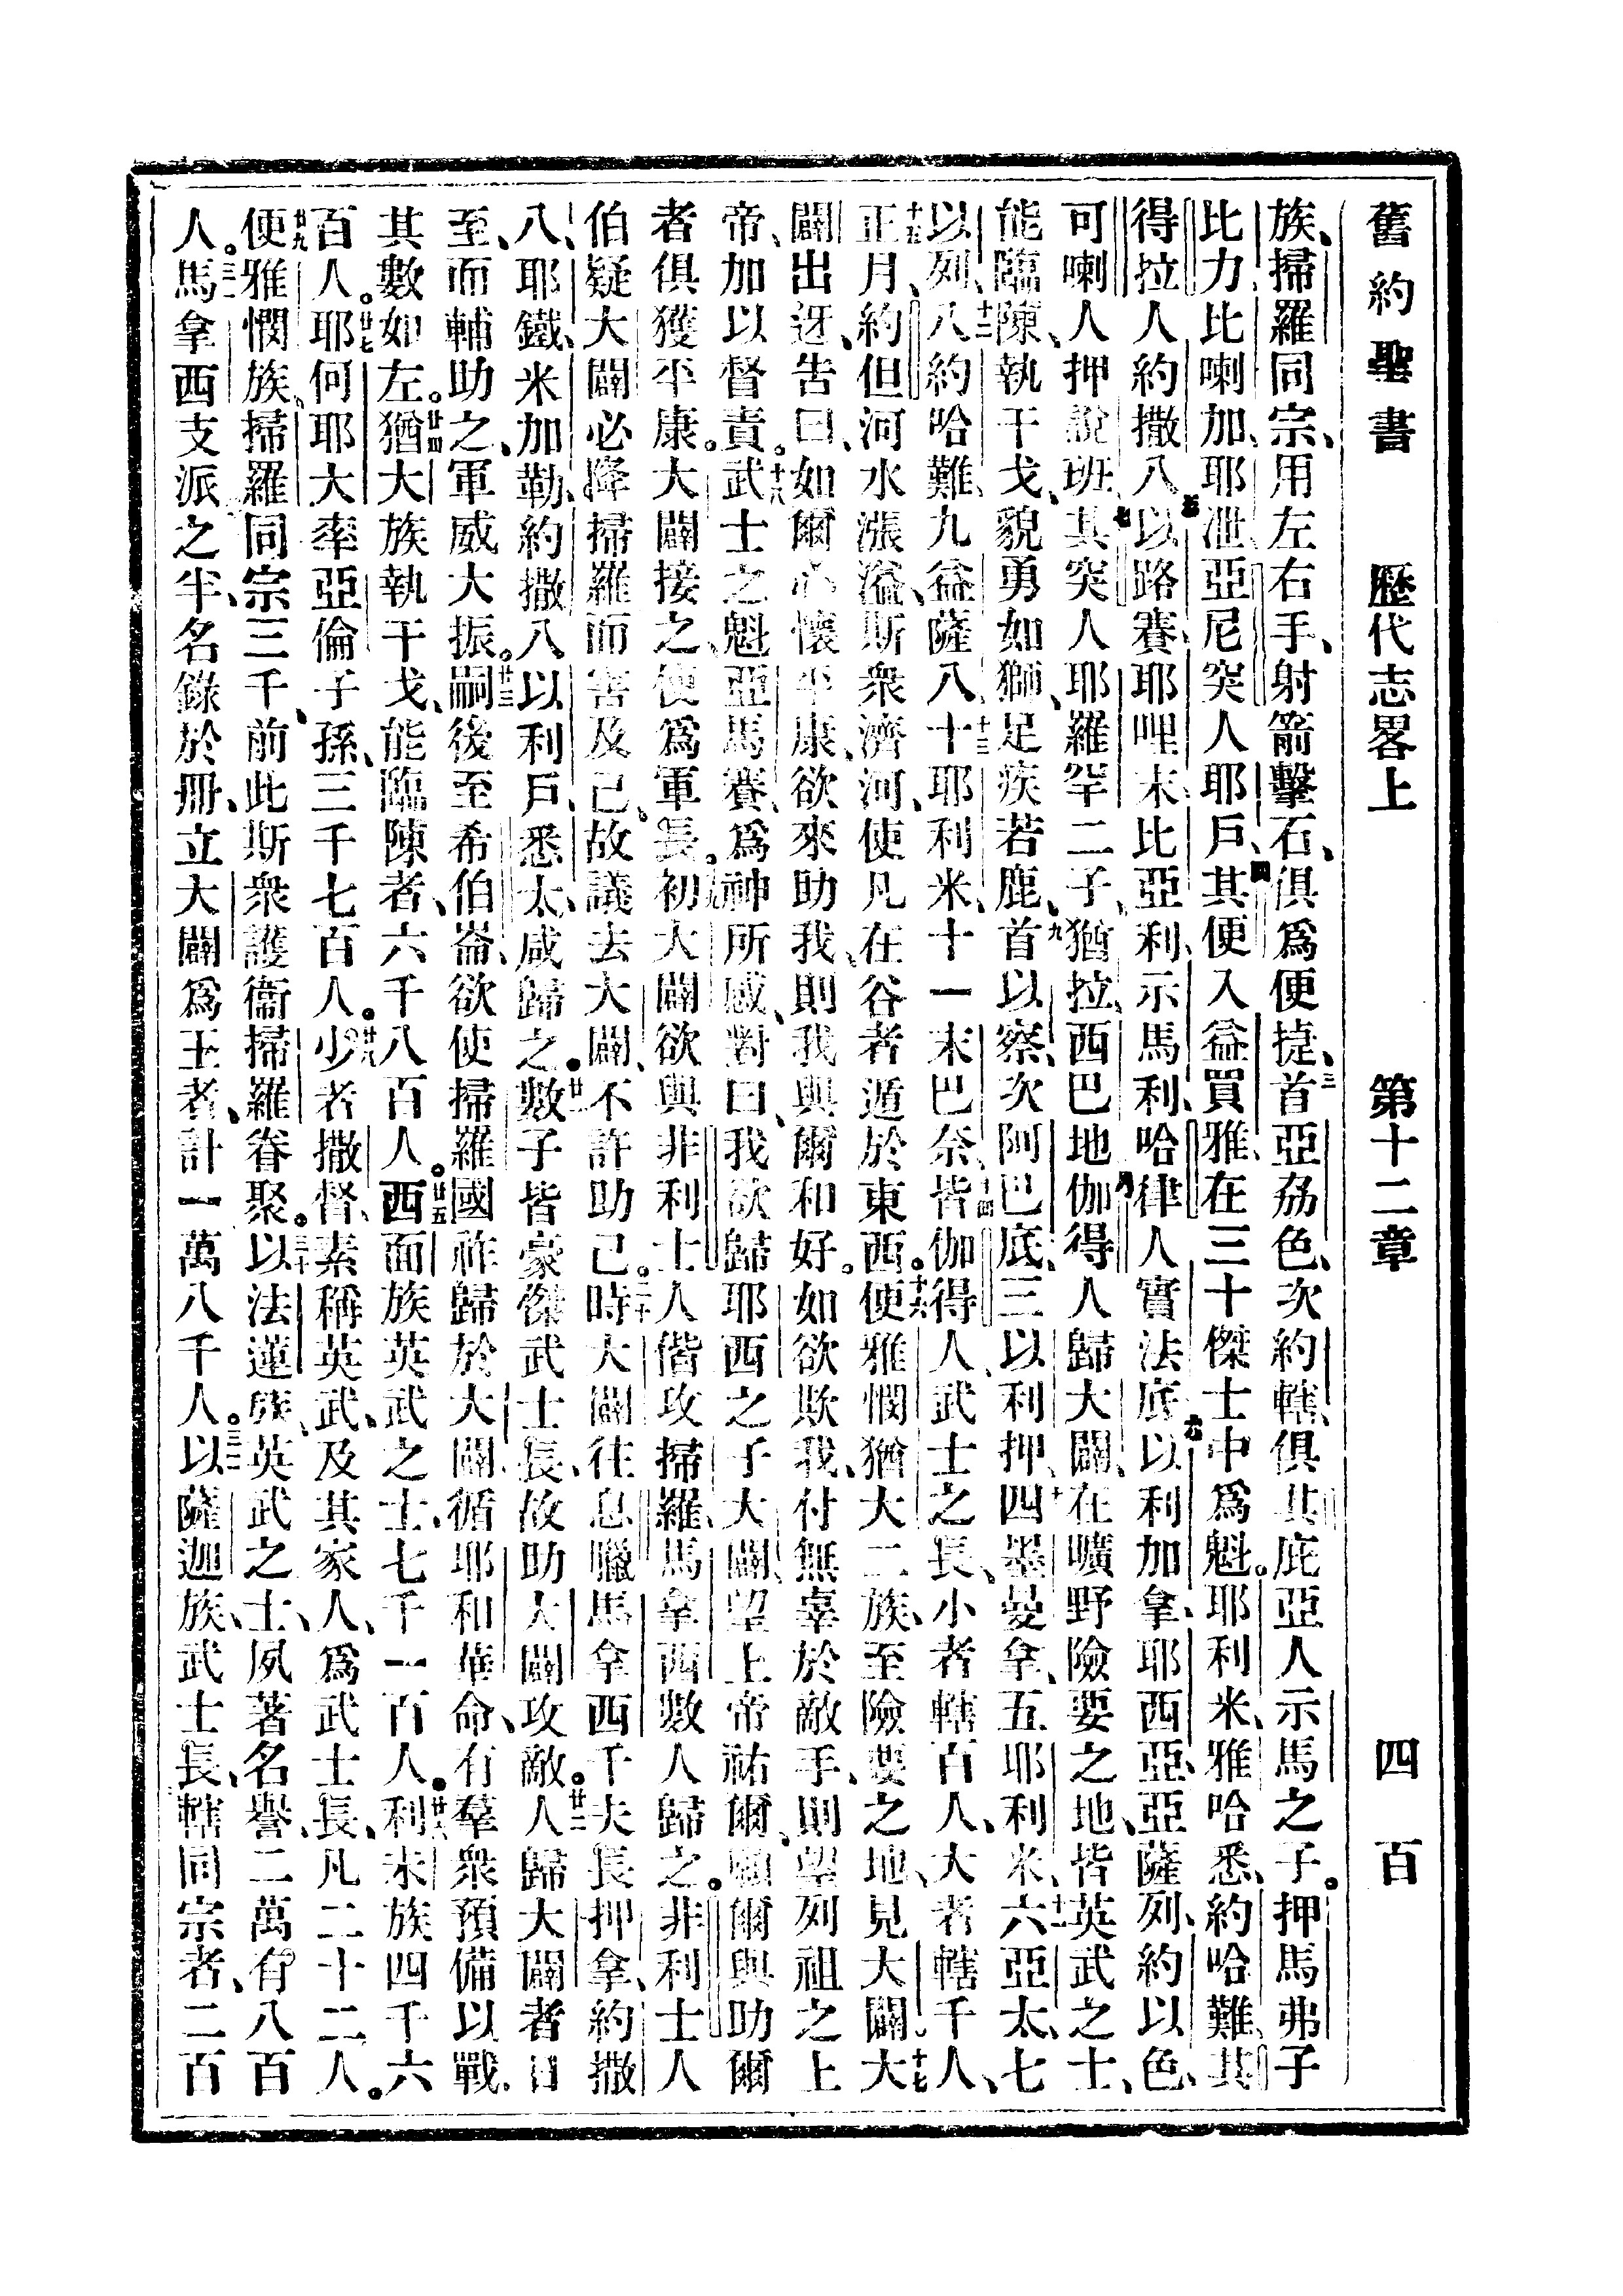 舊約聖書 歷代志畧上 第十二章 四百
族、掃羅同宗、用左右手、射箭擊石、俱爲便捷、三首亞刕色、次約轄、俱其庇亞人示馬之子。押馬弗子
比力、比喇加、耶泄、亞尼突人耶戶、四其便入益買雅在三十傑士中爲魁。耶利米、雅哈悉、約哈難、其
得拉人約撒八、五以路賽、耶哩末、比亞利、示馬利、哈律人實法底、六以利加拿、耶西亞、亞薩列、約以色、
可喇人押說班、七其突人耶羅罕二子、猶拉、西巴地、八伽得人歸大闢、在曠野險要之地、皆英武之士、
能臨陳、執干戈、貌勇如獅、足疾若鹿、九首以察、次阿巴底、三以利押、十四墨曼拿、五耶利米、十一六亞太、七
以列、十二八約哈難、九益薩八、十三十耶利米、十一末巴奈、十四皆伽得人、武士之長、小者轄百人、大者轄千人、
十五正月、約但河水漲溢、斯衆濟河、使凡在谷者遁於東西。十六便雅憫猶大二族、至險要之地、見大闢。十七大
闢出迓、告曰、如爾心懷平康、欲來助我、則我與爾和好。如欲欺我、付無辜於敵手、則望列祖之上
帝、加以督責。十八武士之魁亞馬賽、爲神所感、對曰、我欲歸耶西之子大闢、望上帝祐爾、願爾與助爾
者俱獲平康。大闢接之、使爲軍長。十九初大闢欲與非利士人偕攻掃羅、馬拿西數人歸之。非利士人
伯疑大闢必降掃羅而害及己、故議去大闢、不許助己。二十時大闢往息臘、馬拿西千夫長押拿、約撒
八、耶鐵、米加勒、約撒八、以利戶、悉太、咸歸之。廿一數子皆豪傑武士長、故助大闢攻敵。廿二人歸大闢者日
至、而輔助之、軍威大振。廿三嗣後至希伯崙、欲使掃羅國祚歸於大闢、循耶和華命、有羣衆預備以戰、
其數如左。廿四猶大族執干戈、能臨陳者、六千八百人。廿五西面族英武之士、七千一百人。廿六利未族四千六
百人。廿七耶何耶大率亞倫子孫、三千七百人。廿八少者撒督、素稱英武、及其家人、爲武士長、凡二十二人。
廿九便雅憫族、掃羅同宗三千、前此斯衆護衞掃羅眷聚。三十以法蓮族、英武之士、夙著名譽、二萬有八百
人。三一馬拿西支派之半、名錄於冊、立大闢爲王者、計一萬八千人。三二以薩迦族、武士長、轄同宗者、二百